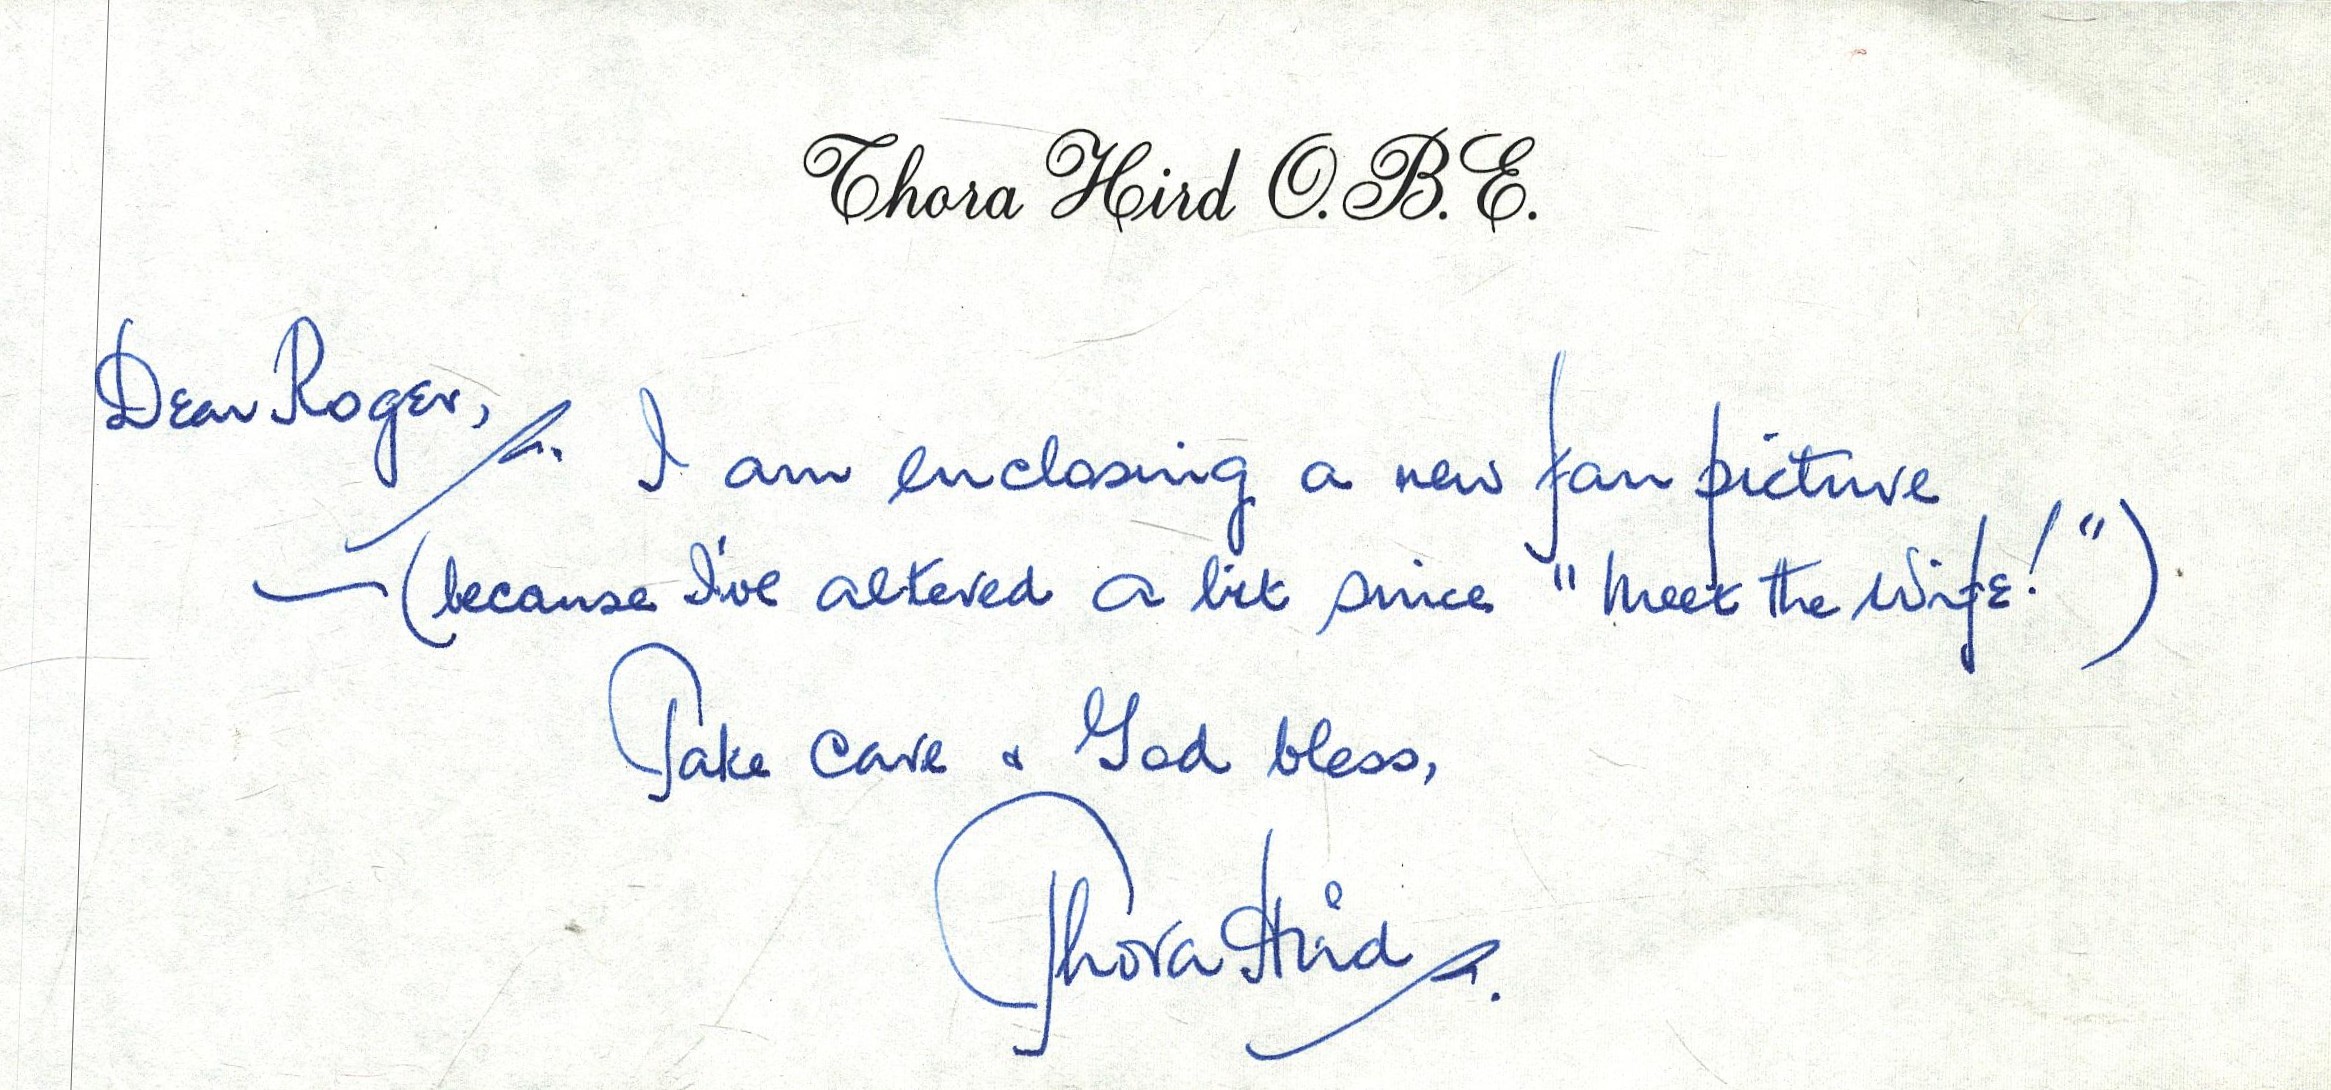 Thora Hird O.B.E.
Dear Roger,
I am enclosing a new fan picture
(because I've altered a bit since "Meet the Wife!")
Take care & God bless,
Thora Hird.